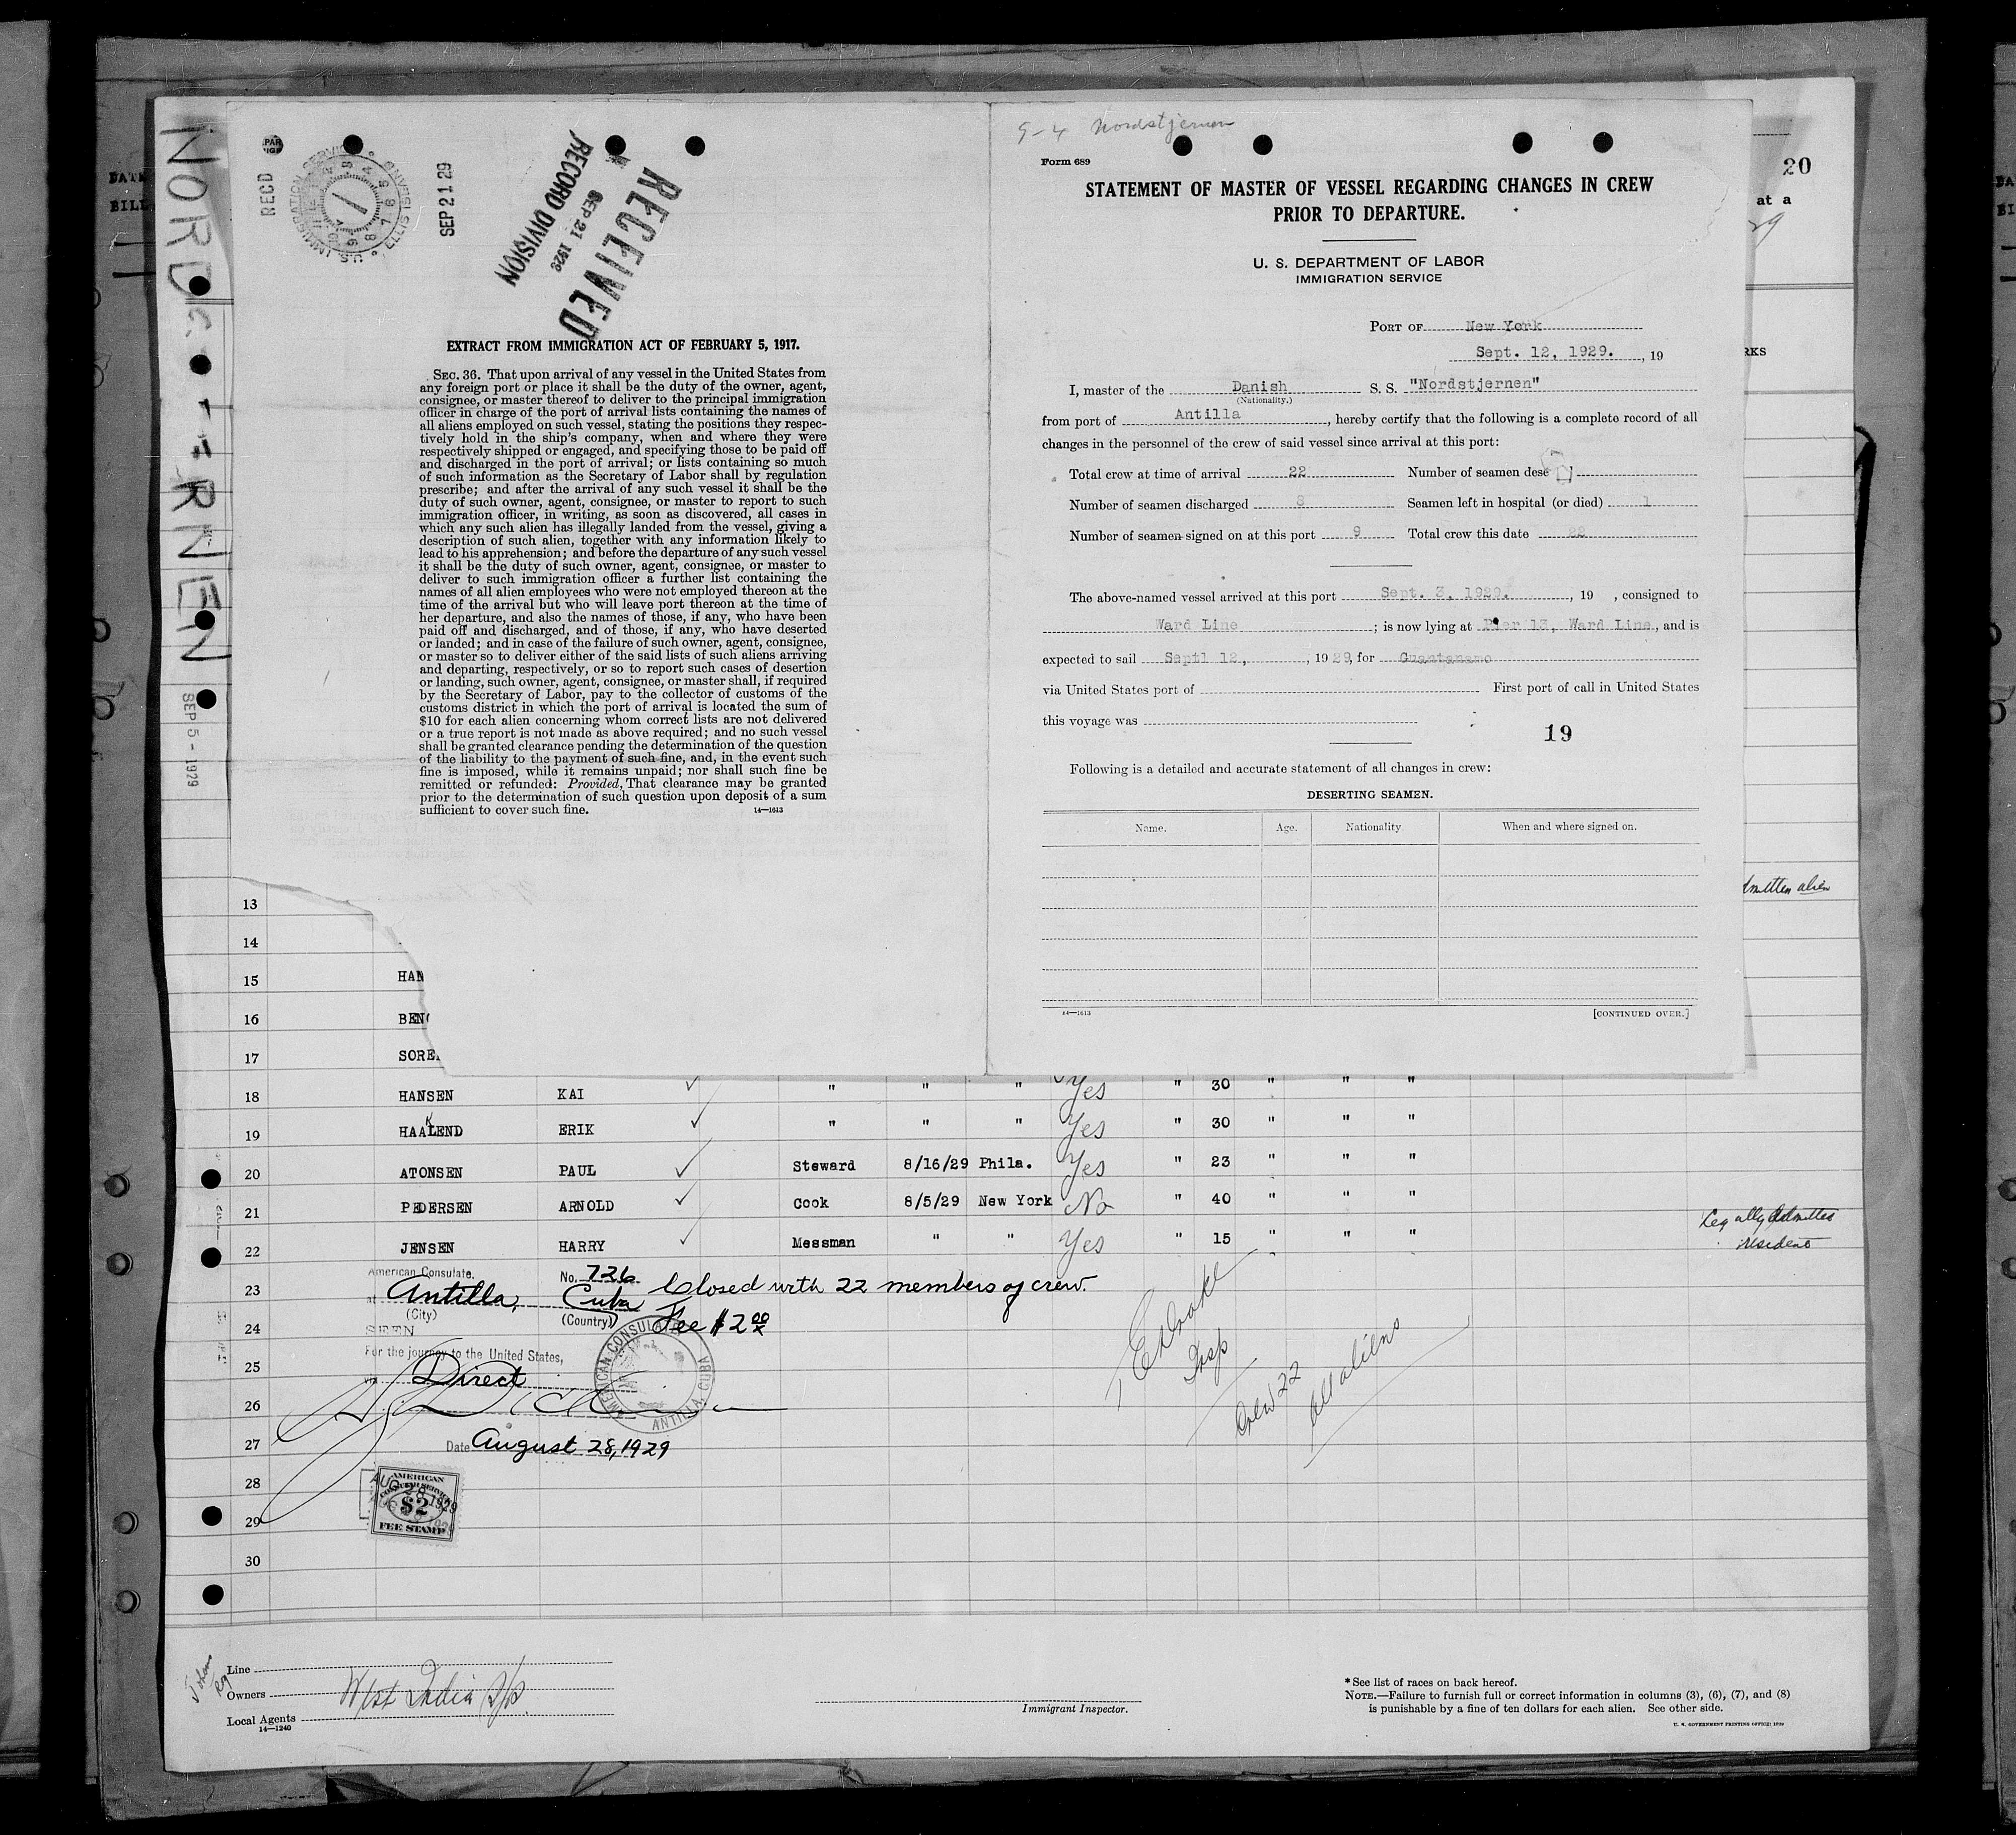 NORDSTJERNEN
SEP 5 - 1929
RECD
U.S. IMMIGRATION SERVICE
ELLIS ISLAND
SEP 21 29
RECEIVED
SEP 21 1929
RECORD DIVISION
EXTRACT FROM IMMIGRATION ACT OF FEBRUARY 5, 1917.
SEC. 36. That upon arrival of any vessel in the United States from
any foreign port or place it shall be the duty of the owner, agent,
consignee, or master thereof to deliver to the principal immigration
officer in charge of the port of arrival lists containing the names of
all aliens employed on such vessel, stating the positions they respec-
tively hold in the ship's company, when and where they were
respectively shipped or engaged, and specifying those to be paid off
and discharged in the port of arrival; or lists containing so much
of such information as the Secretary of Labor shall by regulation
prescribe; and after the arrival of any such vessel it shall be the
duty of such owner, agent, consignee, or master to report to such
immigration officer, in writing, as soon as discovered, all cases in
which any such alien has illegally landed from the vessel, giving a
description of such alien, together with any information likely to
lead to his apprehension; and before the departure of any such vessel
it shall be the duty of such owner, agent, consignee, or master to
deliver to such immigration officer a further list containing the
names of all alien employees who were not employed thereon at the
time of the arrival but who will leave port thereon at the time of
her departure, and also the names of those, if any, who have been
paid off and discharged, and of those, if any, who have deserted
or landed; and in case of the failure of such owner, agent, consignee,
or master so to deliver either of the said lists of such aliens arriving
and departing, respectively, or so to report such cases of desertion
or landing, such owner, agent, consignee, or master shall, if required
by the Secretary of Labor, pay to the collector of customs of the
customs district in which the port of arrival is located the sum of
$10 for each alien concerning whom correct lists are not delivered
or a true report is not made as above required; and no such vessel
shall be granted clearance pending the determination of the question
of the liability to the payment of such fine, and, in the event such
fine is imposed, while it remains unpaid; nor shall such fine be
remitted or refunded: Provided, That clearance may be granted
prior to the determination of such question upon deposit of a sum
sufficient to cover such fine.
14—1613
9-4 Nordstjernen
Form 689
STATEMENT OF MASTER OF VESSEL REGARDING CHANGES IN CREW
PRIOR TO DEPARTURE.
U. S. DEPARTMENT OF LABOR
IMMIGRATION SERVICE
PORT OF New York
Sept. 12, 1929. , 19
I, master of the Danish S. S. "Nordstjernen"
(Nationality.)
from port of Antilla, hereby certify that the following is a complete record of all
changes in the personnel of the crew of said vessel since arrival at this port:
Total crew at time of arrival 22 Number of seamen dese
Number of seamen discharged 8 Seamen left in hospital (or died) 1
Number of seamen signed on at this port 9 Total crew this date 22
The above-named vessel arrived at this port Sept. 3, 1929. , 19 , consigned to
Ward Line ; is now lying at Pier 13, Ward Line, and is
expected to sail Septl 12, , 1929, for Guantanamo
via United States port of First port of call in United States
this voyage was
19
Following is a detailed and accurate statement of all changes in crew:
DESERTING SEAMEN.
Name. Age. Nationality When and where signed on.
14—1613 [CONTINUED OVER.]
20
at a
29
RKS
admitted alien
13
14
15 HAN
16 BEN
17 SORE
18 HANSEN KAI " " " Yes " 30 " " "
19 HAALEND ERIK " " " Yes " 30 " " "
K
20 ATONSEN PAUL Steward 8/16/29 Phila. Yes " 23 " " "
21 PEDERSEN ARNOLD Cook 8/5/29 New York No " 40 " " " Legally Admitted
resident
22 JENSEN HARRY Messman " " Yes " 15 " " "
23 American Consulate. No. 726 Closed with 22 members of crew.
at Antilla, Cuba
(City) (Country)
24 SEEN Fee $2.00
25 For the journey to the United States,
via Direct
26
AMERICAN CONSULATE
ANTILLA, CUBA
27 Date August 28, 1929
28
29
30
AMERICAN
CONSULAR SERVICE
$2
FEE STAMP
AUG 28 1929
Insp
Crew 22
All aliens
Line
Owners West India S/S
Local Agents
14—1240
Immigrant Inspector.
* See list of races on back hereof.
NOTE.—Failure to furnish full or correct information in columns (3), (6), (7), and (8)
is punishable by a fine of ten dollars for each alien. See other side.
U. S. GOVERNMENT PRINTING OFFICE: 1929